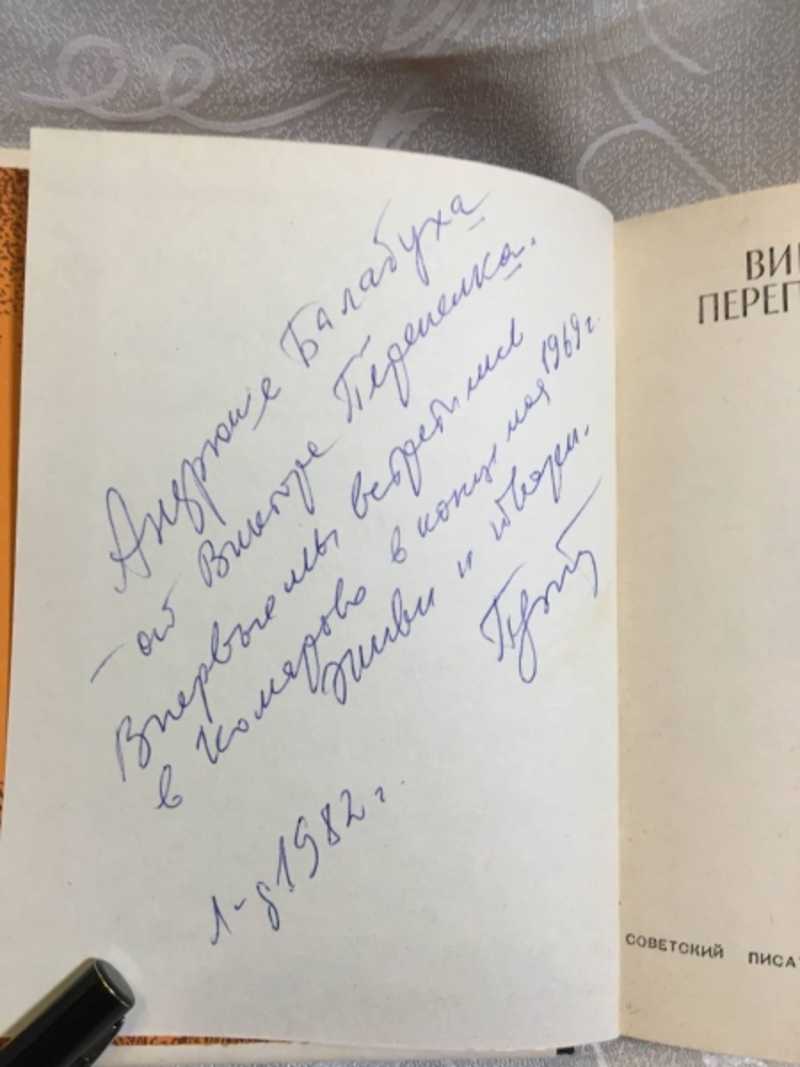 Андрюше Балабуха
— от Виктора Перепелка.
Впервые мы встретились
в Комарово в конце мая 1969 г.
Живи и твори.
Л-д 1982 г.
ВИ
ПЕРЕП
СОВЕТСКИЙ ПИСА